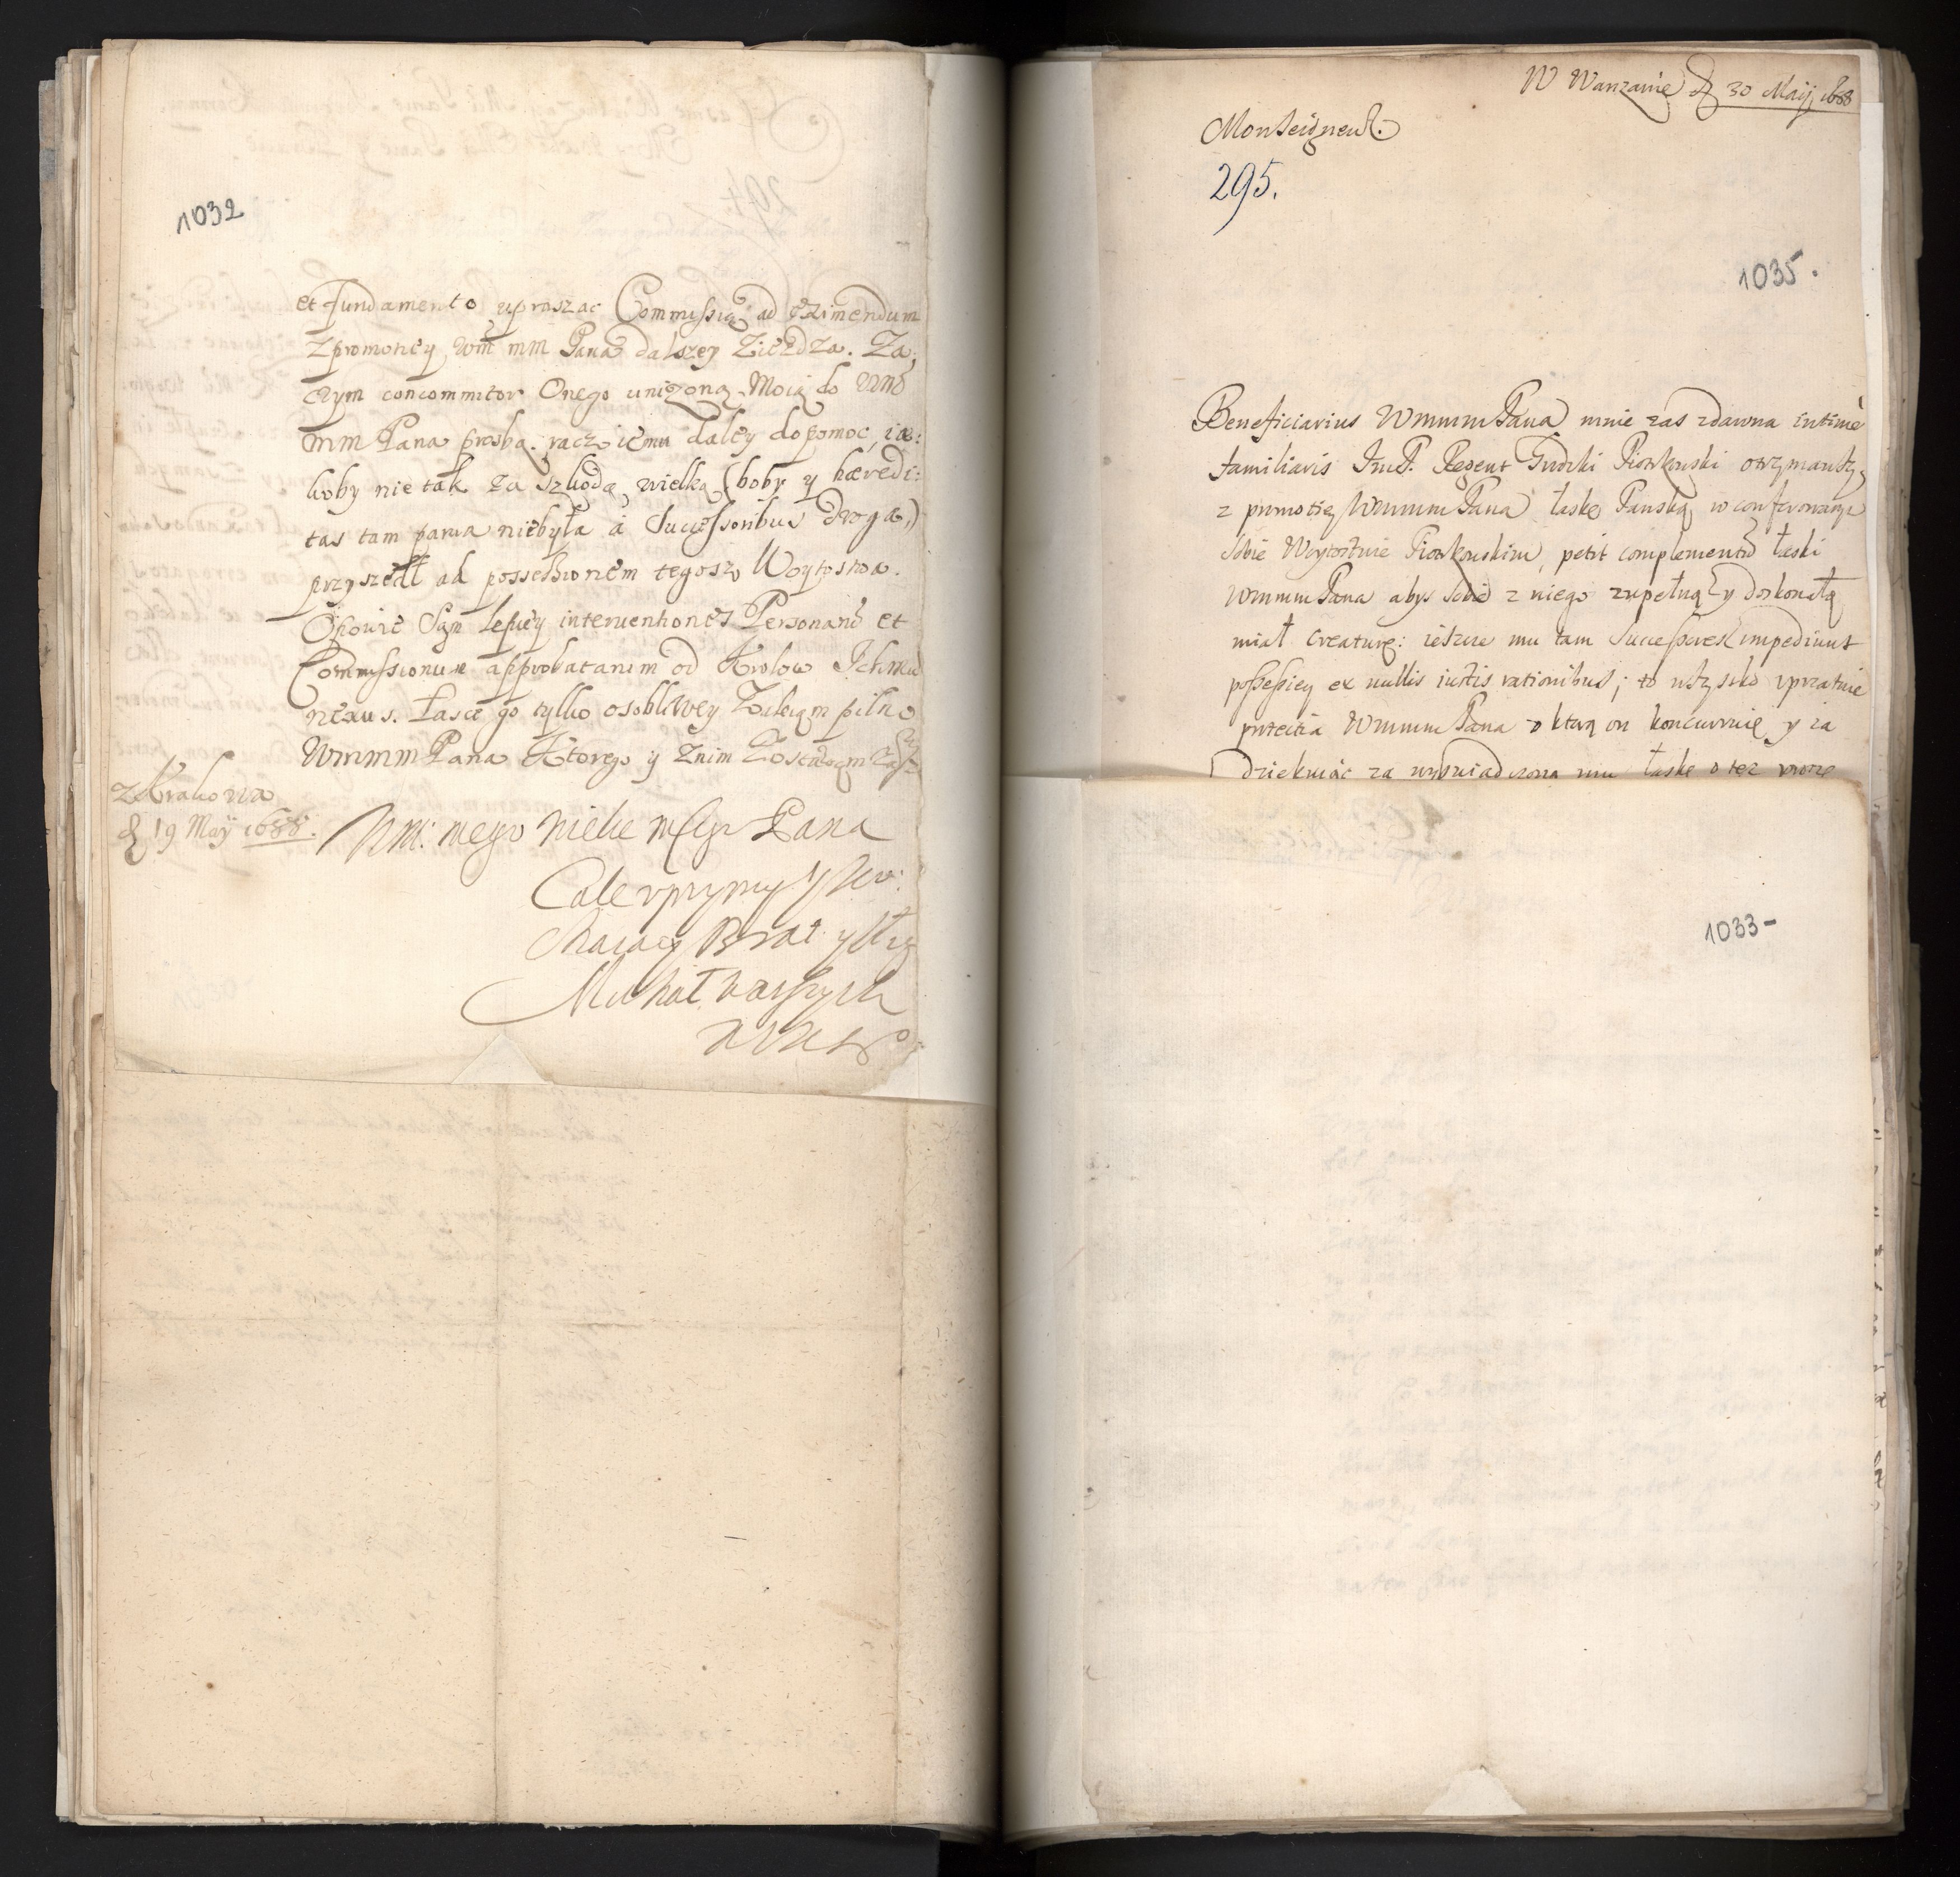 1032
et fundamento upraszac Commissią ad eximendum
z promotiey Wm mm Pana dalszey ziezdza. Za,
czym concommitor Onego unizoną Moią do Wmo
mm Pana prosbą. racz iemu daley dopomoc, ia:
koby nie tak za szkodą wielką (boby y hæredi:
tas tam parva niebyła à Successoribus droga,)
przyszedł ad possessionem tegosz Woytostwa.
lepiey interventiones Personans et
Commissionum approbatarum od Krolow Ichmci
nexus. Łasce go tylko osobliwey Zalecam pilno
Wmmm Pana Ktorego y znim Zostawam
z Krakowa
d 19 Maÿ 1688.
Wm: mego Pana
Cale uprzymy
Brat y
Michał
W Warszawie d 30 Maij 1688
Monseigneur.
295.
1035.
Beneficiarius Wmmm Pana mnie zas zdawna intimè
familiaris Jm P. Regent Grodzki Piotrkowski otrzymawszy
z promotię Wmmm Pana łaskę Panską w conferowanym
sobie Woytostwie Piotrkowskim, petit complementū łaski
Wmmm Pana abys sobie z niego zupełną y doskonałą
miał creaturę: ieszcze mu tam Successores impediunt
possessiey ex nullis iustis rationibus; to wszystko uprzatnie
protectia Wmmm Pana o ktorą on konkurruię y za
dziekuiąc za wyswiadczoną mu łaskę o też proszę
1033-